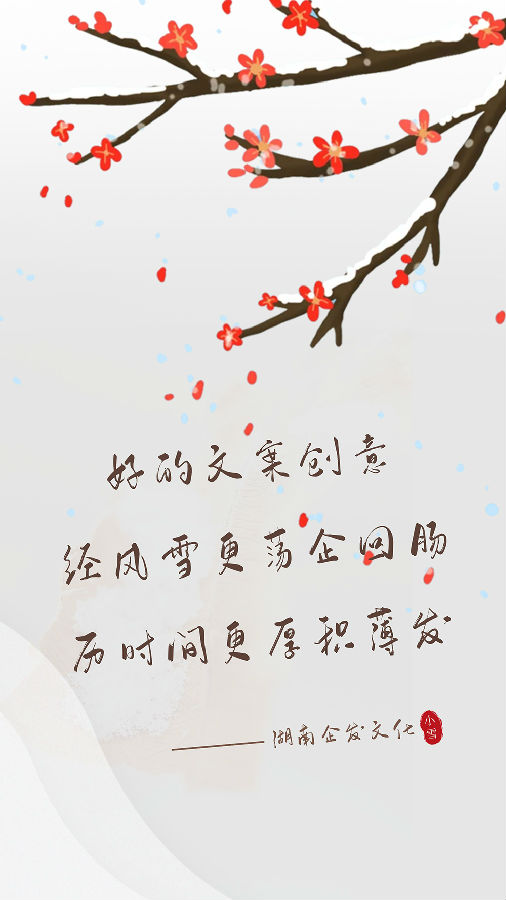 好的文案创意
经风雪更荡企回肠
历时间更厚积薄发
——湖南企发文化
小雪